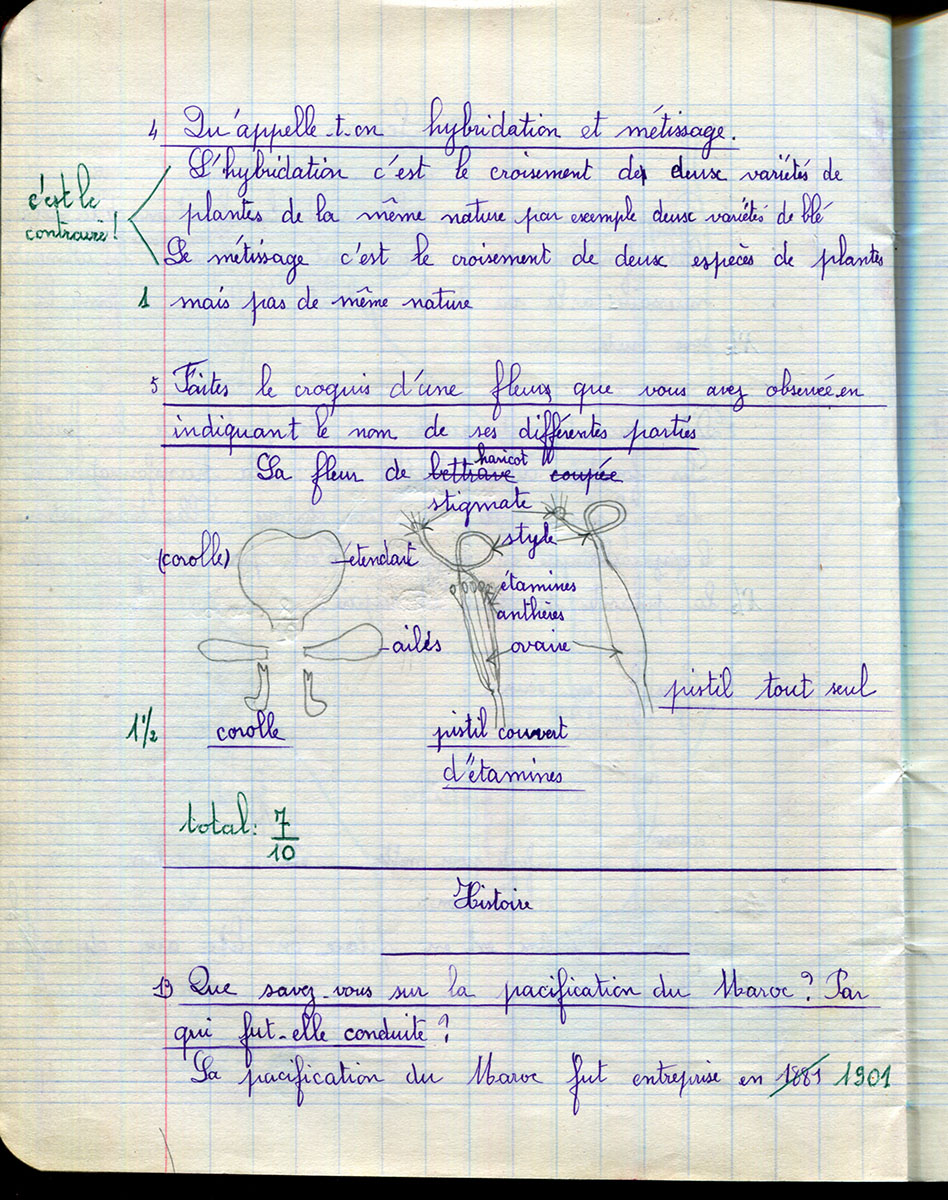 4 Qu'appelle-t-on hybridation et métissage.
L'hybridation c'est le croisement de deux variétés de
c'est le
plantes de la même nature par exemple deux variétés de blé
contraire!
Le métissage c'est le croisement de deux espèces de plantes
1 mais pas de même nature
5 Faites le croquis d'une fleurs que vous avez observée en
indiquant le nom de ses différentes parties
haricot
La fleur de bettrave coupée
stigmate
(corolle) étendart style
étamines
anthères
ailés ovaire
pistil tout seul
1 1/2 corolle pistil couvert
d'étamines
total: 7/10
Histoire
1) Que savez-vous sur la pacification du Maroc? Par
qui fut-elle conduite?
La pacification du Maroc fut entreprise en 1881 1901